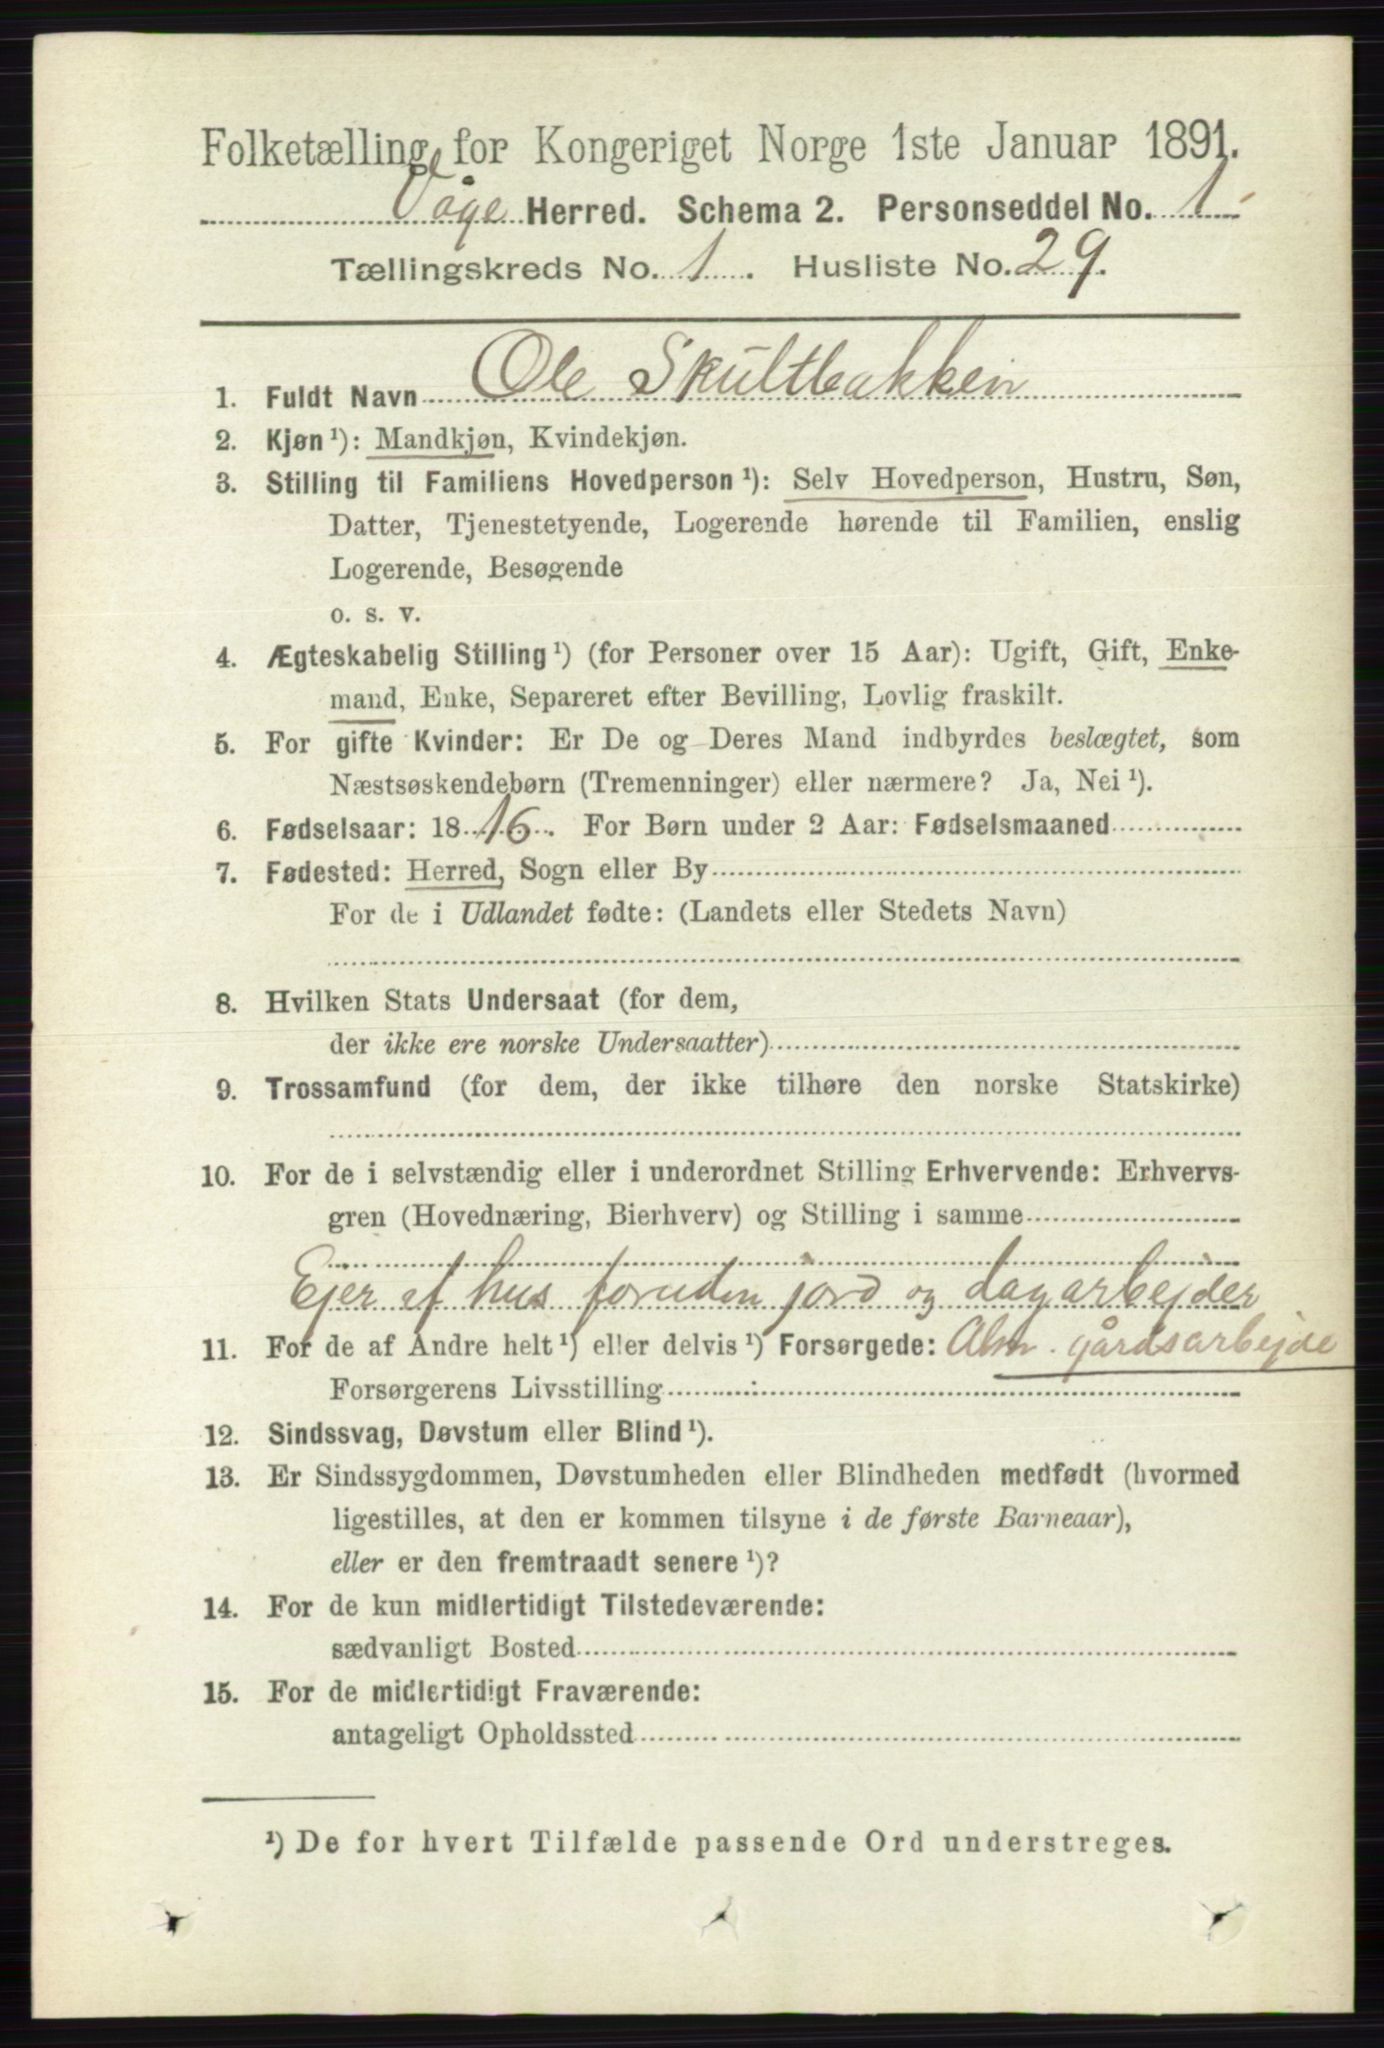 Folketælling for Kongeriget Norge 1ste Januar 1891.
Våge Herred. Schema 2. Personseddel No. 1
Tællingskreds No. 1. Husliste No. 29.
1. Fuldt Navn Ole Skultbakken
2. Kjøn ¹): Mandkjøn, Kvindekjøn.
3. Stilling til Familiens Hovedperson ¹): Selv Hovedperson, Hustru, Søn,
Datter, Tjenestetyende, Logerende hørende til Familien, enslig
Logerende, Besøgende
o. s. v.
4. Ægteskabelig Stilling ¹) (for Personer over 15 Aar): Ugift, Gift, Enke-
mand, Enke, Separeret efter Bevilling, Lovlig fraskilt.
5. For gifte Kvinder: Er De og Deres Mand indbyrdes beslægtet, som
Næstsøskendebørn (Tremenninger) eller nærmere? Ja, Nei ¹).
6. Fødselsaar: 1816. For Børn under 2 Aar: Fødselsmaaned
7. Fødested: Herred, Sogn eller By
For de i Udlandet fødte: (Landets eller Stedets Navn)
8. Hvilken Stats Undersaat (for dem,
der ikke ere norske Undersaatter)
9. Trossamfund (for dem, der ikke tilhøre den norske Statskirke)
10. For de i selvstændig eller i underordnet Stilling Erhvervende: Erhvervs-
gren (Hovednæring, Bierhverv) og Stilling i samme
Ejer af hus foruden jord og dagarbejder
11. For de af Andre helt ¹) eller delvis ¹) Forsørgede: Alm. gårdsarbejde
Forsørgerens Livsstilling
12. Sindssvag, Døvstum eller Blind ¹).
13. Er Sindssygdommen, Døvstumheden eller Blindheden medfødt (hvormed
ligestilles, at den er kommen tilsyne i de første Barneaar),
eller er den fremtraadt senere ¹)?
14. For de kun midlertidigt Tilstedeværende:
sædvanligt Bosted
15. For de midlertidigt Fraværende:
antageligt Opholdssted
¹) De for hvert Tilfælde passende Ord understreges.